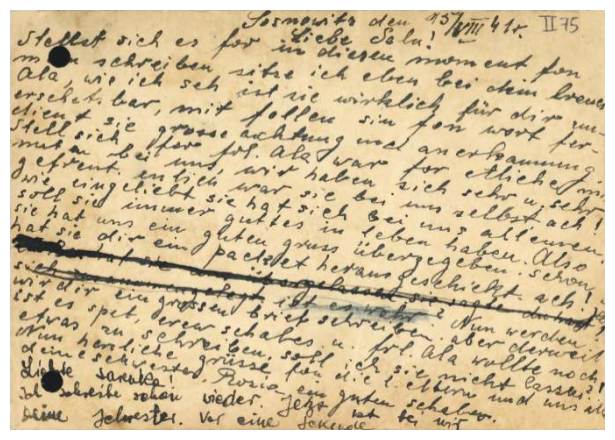 Sosnowitz den 15/VIII 41r. II 75
Liebe Sala!
Stellst sich es for in diesen moment fon
mein schreiben sitze ich eben bei dein
Ala, wie ich seh ist sie wirklich für dir un-
ersetsbar, mit follen sin fon wort fer-
dient sie grosse achtung und anerkannung.
Stell sich for frl. Ala war for etliche mi-
nuten bei uns, wir haben sich sehr u. sehr
gefreut. enlich war sie bei uns selbst ach!
wie eingeliebt sie hat sich bei uns all
soll sie immer guttes in leben haben. Also
sie hat uns ein guten gruss übergegeben. schon
hat sie dir ein packet herausgeschickt. ach!
sie sagte du hast
sich ist es wahr? Nun werden
wir dir ein grossen brief schreiben. aber derweil
ist es spet. u. frl. Ala wollte noch
etwas zu schreiben. soll ich sie nicht lassen?!
Nun herzliche grüsse fon die l. eltern und uns
deine schwester Rosia ein guten schabes.
Liebste
Ich schreibe schon wieder. Jetz ist bei mir
Deine Schwester. vor eine